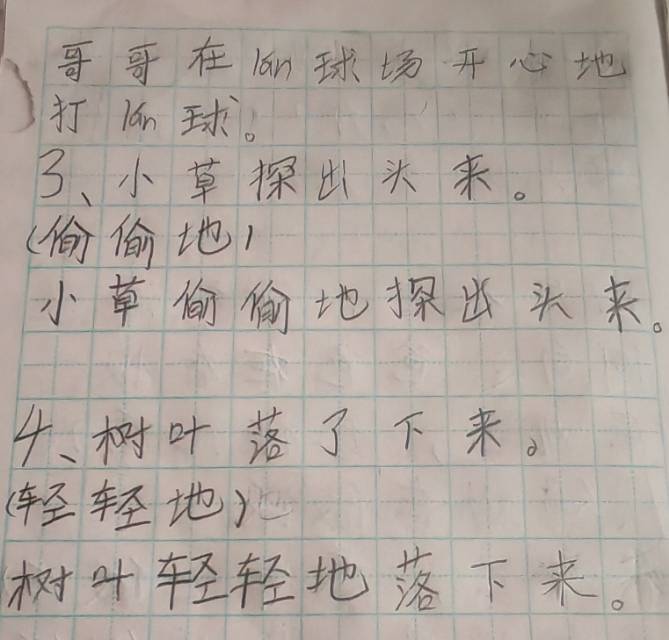 哥哥在lán球场开心地
打lán球。
3、小草探出头来。
(偷偷地)
小草偷偷地探出头来。
4、树叶落了下来。
(轻轻地)
树叶轻轻地落下来。